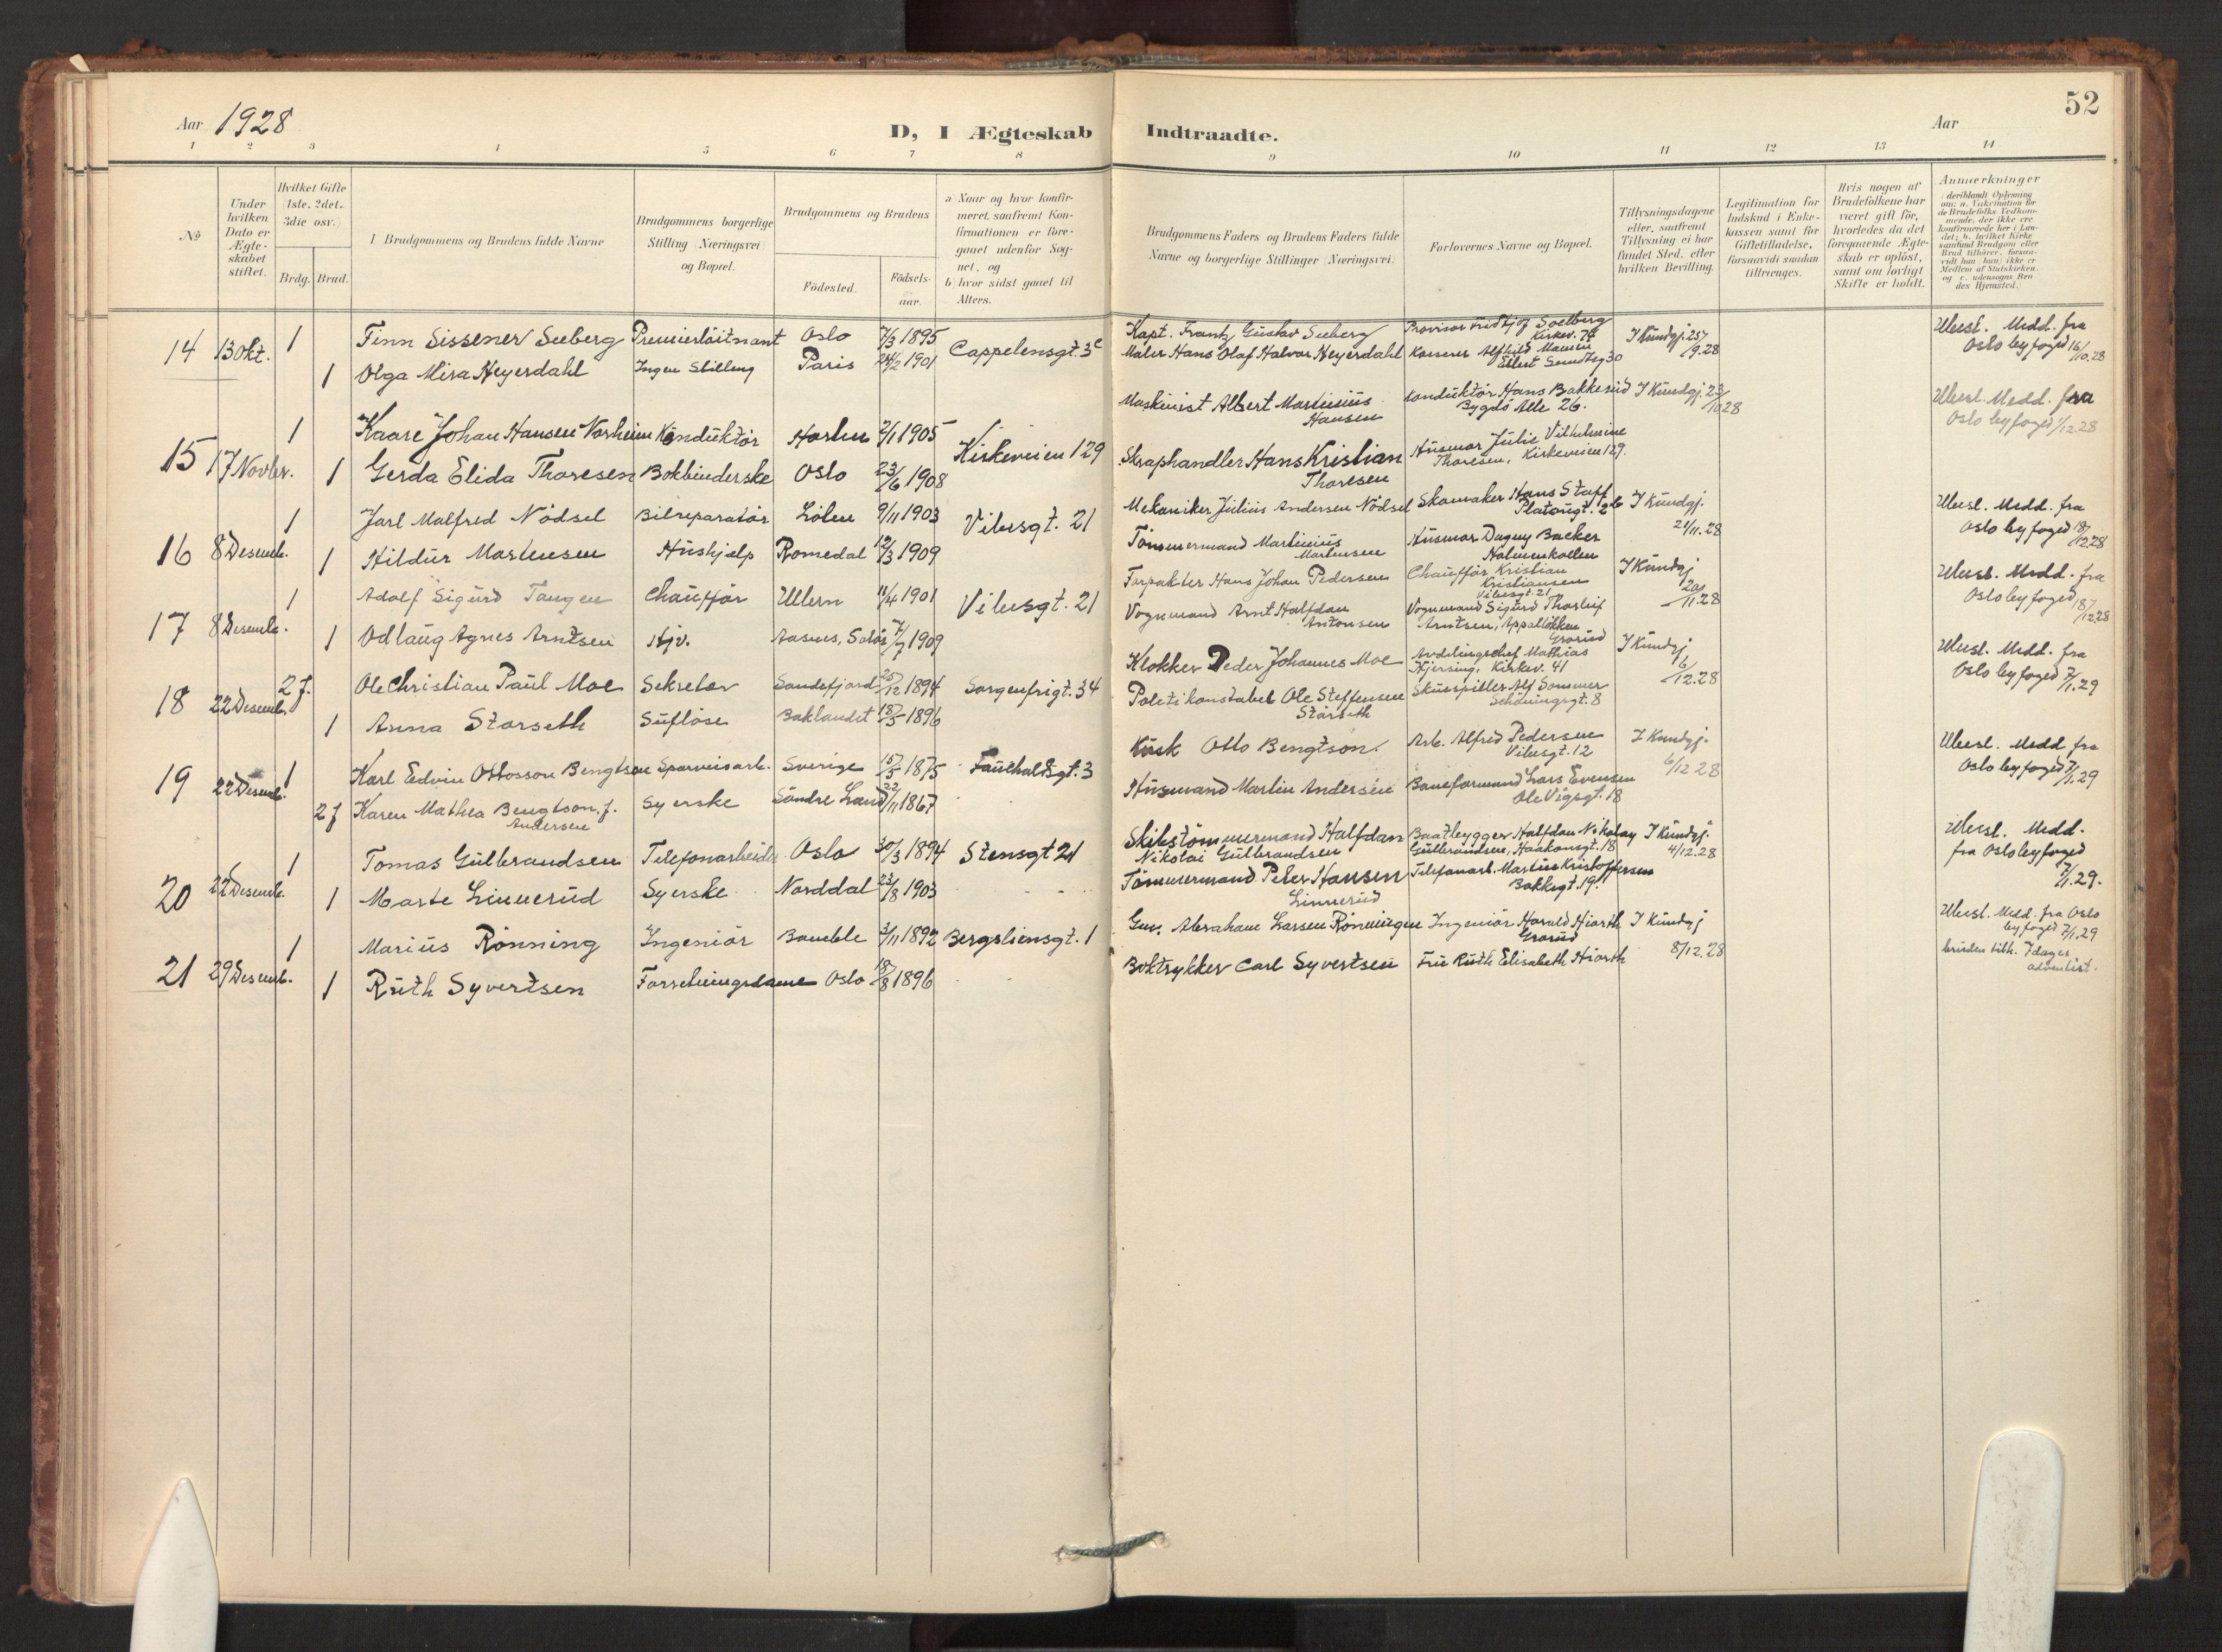 Aar 1928
D, I Ægteskab Indtraadte.
Aar
52
1 2 3 4 5 6 7 8 9 10 11 12 13 14
No
Under hvilken Dato er Ægteskabet stiftet.
Hvilket Gifte (1ste, 2det, 3die osv.)
Brdg. Brud.
Brudgommens og Brudens fulde Navne
Brudgommens borgerlige Stilling (Næringsvei) og Bopæl.
Brudgommens og Brudens
Födested.
Födsels-aar.
a) Naar og hvor konfirmeret, saafremt Konfirmationen er foregaaet udenfor Sognet, og
b) hvor sidst gaaet til Alters.
Brudgommens Faders og Brudens Faders fulde Navne og borgerlige Stillinger (Næringsvei).
Forlovernes Navne og Bopæl.
Tillysningsdagene eller, saafremt Tillysning ei har fundet Sted, efter hvilken Bevilling.
Legitimation for Indskud i Enkekassen samt for Giftetilladelse, forsaavidt saadan tiltrænges.
Hvis nogen af Brudefolkene har været gift för, hvorledes da det foregaaende Ægteskab er oplöst, samt om lovligt Skifte er holdt.
Anmærkninger
14 13 Okt. 1 Finn Sissener Seeberg Premierløitnant Oslo 7/3 1895 Cappelensgt. 3c Kapt. Frantz Gustav Seeberg Provisor Fridtjof Soelberg Kirkev. 74 I Kundgj. 25/9.28 Utst. Medd. fra Oslo byfoged 16/10.28
1 Olga Mira Heyerdahl Ingen Stilling Paris 24/2 1901 Maler Hans Olaf Halvor Heyerdahl Eilert Sundtsg 30
15 17 Novbr. 1 Kaare Johan Hansen Norheim Konduktör Horten 2/11 1905 Kirkeveien 129 Maskinist Albert Martinius Hansen Konduktör Hans Bakkerud Bygdö Alle 26. I Kundgj. 23/10 28 Utst. Medd. fra Oslo byfoged 1/12.28
1 Gerda Elida Thoresen Bokbinderske Oslo 23/6 1908 Skraphandler Hans Kristian Thoresen Husmor Julie Vilhelmine Thoresen, Kirkeveien 129.
16 8 Desemb. 1 Jarl Malfred Nödsel Bilreparatör Löten 9/11 1903 Vibesgt. 21 Mekaniker Julius Andersen Nödsel Skomaker Hans Staff Platougt. 26 I Kundgj. 21/11.28 Utst. Medd. fra Oslo byfoged 18/12 28
1 Hildur Martinsen Hushjelp Romedal 12/3 1909 Tömmermand Martinius Martinsen Husmor Dagny Backer Holmenkollen
17 8 Desemb. 1 Adolf Sigurd Tangen Chauffør Ullern 11/4 1901 Vibesgt. 21 Forpakter Hans Johan Pedersen Chauffør Kristian Kristiansen Vibesgt. 21 I Kundgj 20/11.28 Utst. Medd. fra Oslo byfoged 18/12 28
1 Odlaug Agnes Arntsen Hjv. Aasnes, Solör 7/7 1909 Vognmand Arnt Halfdan Antonsen Vognmand Sigurd Thorleif Arntsen, Appalløkken Grorud
18 22 Desemb. 2 f. Ole Christian Paul Moe Sekretær Sandefjord 25/12 1894 Sorgenfrigt. 34 Klokker Peder Johannes Moe Avdelingschef Mathias Hjersing, Kirkev. 41 I Kundgj 6/12.28 Utst. Medd. fra Oslo byfoged 7/1.29
1 Anna Storseth Suflöse Baklandet 18/5 1896 Politikonstabel Ole Steffensen Storseth Skuespiller Alf Sommer Schöningsgt. 8
19 22 Desemb. 1 Karl Edvin Ottosson Bengtson Sporveisarb. Sverige 15/5 1875 Fauchaldsgt. 3 Kusk Otto Bengtson. Arb. Alfred Pedersen Vibesgt. 12 I Kundgj. 6/12 28 Utst. Medd fra Oslo byfoged 7/1.29
2 f Karen Mathea Bengtson, f. Andersen Syerske Søndre Land 22/11 1867 Husmand Martin Andersen Baneformand Lars Evensen Ole Vigsgt. 18
20 22 Desemb. 1 Tomas Gulbrandsen Telefonarbeider Oslo 30/3 1894 Stensgt 21 Skibstömmermand Halfdan Nikolai Gulbrandsen Baatbygger Halfdan Nikolay Gulbrandsen, Haakonsgt. 18 I Kundgj. 4/12.28 Utst. Medd. fra Oslo byfoged 7/1.29.
1 Marte Linnerud Syerske Norddal 23/8 1903 Tömmermand Peter Hansen Linnerud Telefonarb. Martius Kristoffersen Bakkegt. 19.
21 29 Desemb. 1 Marius Rönning Ingeniör Bamble 3/11 1892 Bergsliensgt. 1 Abraham Larsen Rönningen Ingeniör Harald Hiorth Grorud I Kundgj 8/12.28 Utst. Medd. fra Oslo byfoged 7/1.29
1 Ruth Syvertsen Forretningsdame Oslo 18/8 1896 Boktrykker Carl Syvertsen Fru Ruth Elisabeth Hiorth bruden tilh. 7 dages adventist.